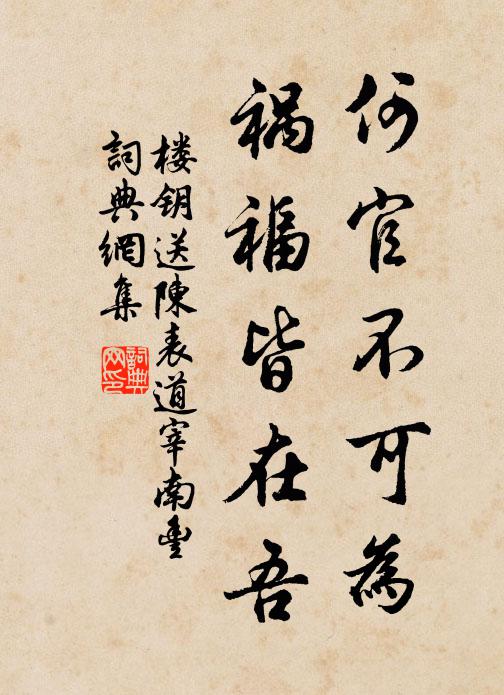 何官不可為
禍福皆在吾
楼钥送陳表道宰南豐
詞典網集
詞典网印